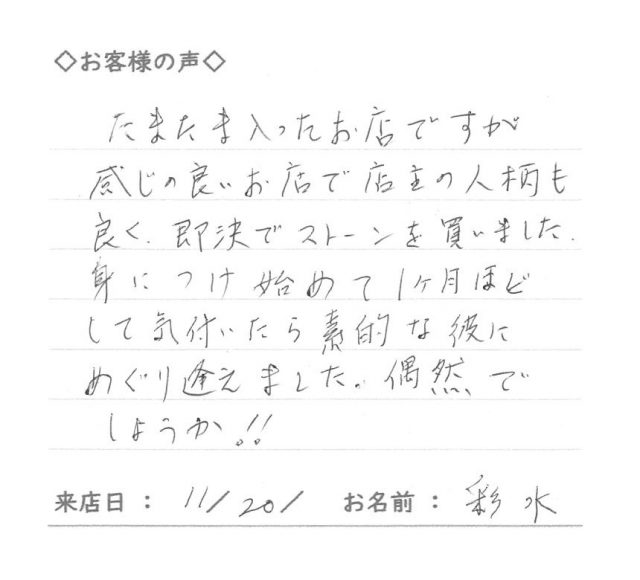 ◇お客様の声◇
たまたま入ったお店ですが
感じの良いお店で店主の人柄も
良く、即決でストーンを買いました。
身につけ始めて1ヶ月ほど
して気付いたら素的な彼に
めぐり逢えました。偶然で
しょうか!!
来店日： 11/20/ お名前： 彩水